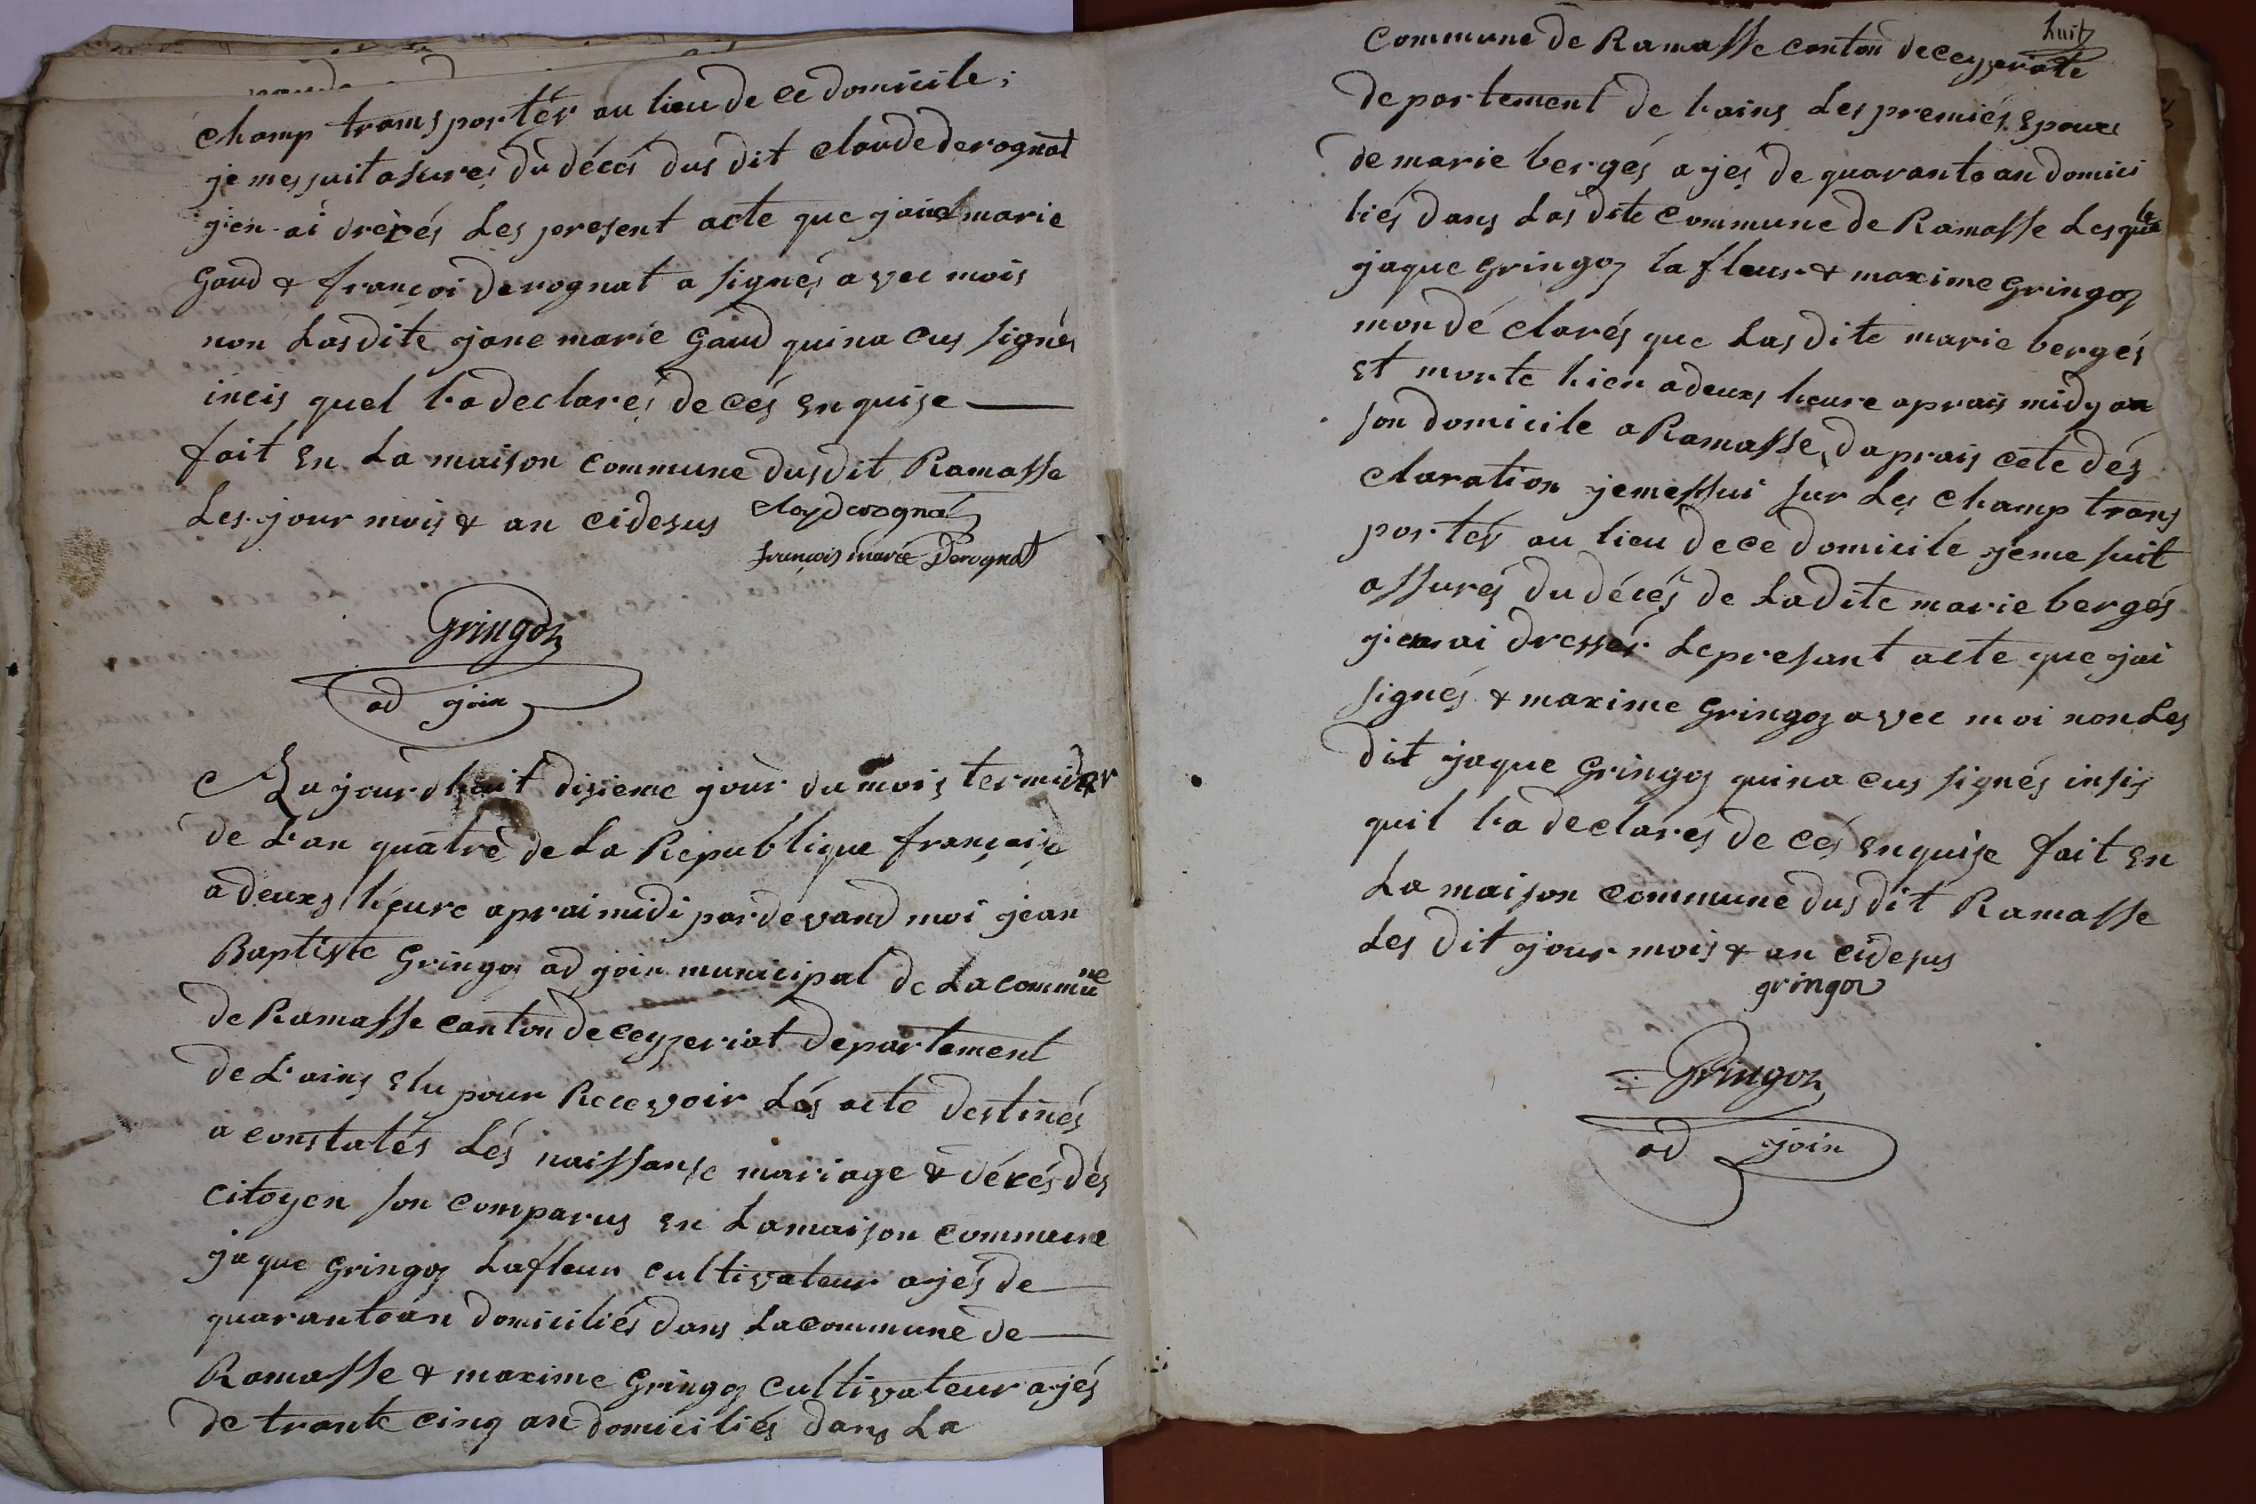 champ transportér au lieu de ce domicile;
je mes suit asurés du décés dus dit claude derognat
j'en ai drèsés Les present acte que jane marie
gaud & françoi derognat a signés avec mois
non Lasdite jane marie gaud quina cus signés
incis quel la declarés de cés enquise
fait En La maison commune dusdit Ramasse
Les jour mois & an cidesus
cloy derognat
françois marie Derognat
Gringoz
ad join
Au jourdhuit dixieme jour du mois termidor
de L'an quatre de La Republique françaisse
a deuxs heure aprai midi pardevand moi jean
Baptiste Gringoz ad join municipal de La commune
de Ramasse canton de ceyzeriat departement
de L'ains Elu pour Recevoir Lés acte destinés
a constatés Lés naissanse mariage & décés dés
citoyen son comparus En La maison commune
jaque Gringoz Lafleur cultivateur ajés de
quarante an domiciliés dans La commune de
Ramasse & maxime Gringoz cultivateur ajés
de trante cinq an domiciliés dans La
huit
commune de Ramasse canton de ceyzeriate
departement de lains Les premiés Epoux
de marie bergés ajés de quarante an domici
liés dans Las dite commune de Ramasse Lesquele
jaque Gringoz lafleur & maxime Gringoz
mon déclarés que Lasdite marie bergés
Et morte hier a deuxs heure aprais midy an
son domicile a Ramasse, daprais cete dés
claration jemessui sur Les champ trans
portér au lieu de ce domicile jeme suit
assurés du décés de Ladite marie bergés
jen ai dresser Le presant acte que jai
signés & maxime Gringoz avec moi non Les
dit jaque Gringoz quina cus signés insis
quil la declarés de cés enquise fait En
La maison commune dusdit Ramasse
Les dit jour mois & an cidesus
gringoz
Gringoz
ad join